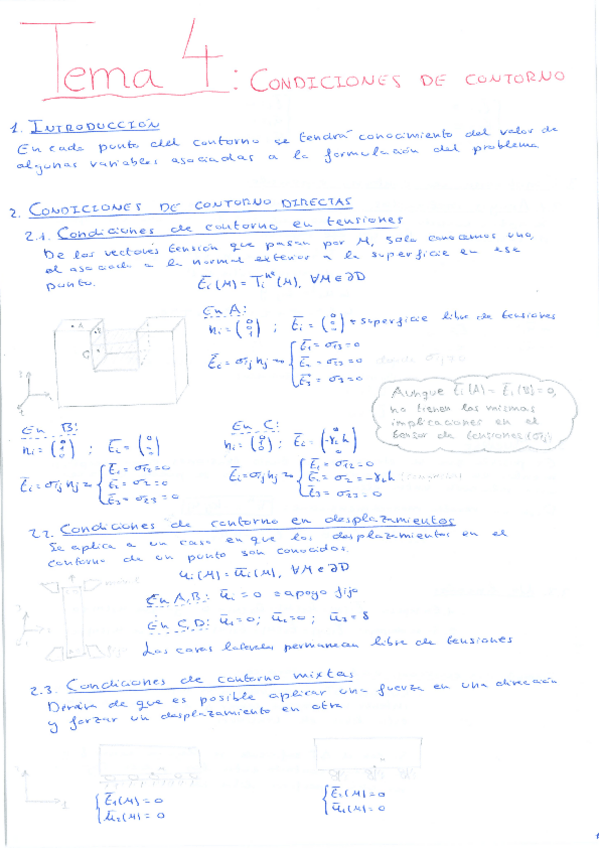 Tema 4: CONDICIONES DE CONTORNO
1. INTRODUCCIÓN
En cada punto del contorno se tendrá conocimiento del valor de
algunas variables asociadas a la formulación del problema
2. CONDICIONES DE CONTORNO DIRECTAS
2.1. Condiciones de contorno en tensiones
De los vectores tensión que pasan por M, solo conocemos uno,
el asociado a la normal exterior a la superficie en ese
punto. t̄i(M) = Ti^ne(M), ∀M∈∂D
En A:
ni = (0 0 1) ; t̄i = (0 0 0) → superficie libre de tensiones
t̄i = σij nj → { t̄1 = σ13 = 0
t̄2 = σ23 = 0
t̄3 = σ3 = 0
Aunque t̄i(A) = t̄i(B) = 0,
no tienen las mismas
implicaciones en el
tensor de tensiones (σij)
En B:
ni = (0 1 0) ; t̄i = (0 0 0)
t̄i = σij nj → { t̄1 = σ12 = 0
t̄2 = σ2 = 0
t̄3 = σ23 = 0
En C:
ni = (0 1 0) ; t̄i = (0 -γL h 0)
t̄i = σij nj → { t̄1 = σ12 = 0
t̄2 = σ2 = -γL h
t̄3 = σ23 = 0
2.2. Condiciones de contorno en desplazamientos
Se aplica a un caso en que los desplazamientos en el
contorno de un punto son conocidos.
ui(M) = ūi(M), ∀M∈∂D
En A,B: ūi = 0 → apoyo fijo
En C,D: ū1 = 0; ū2 = 0; ū3 = δ
Las caras laterales permanecen libre de tensiones
2.3. Condiciones de contorno mixtas
Deriva de que es posible aplicar una fuerza en una dirección
y forzar un desplazamiento en otra
{ t̄1(M) = 0
ū2(M) = 0
{ t̄2(M) = 0
ū1(M) = 0
1